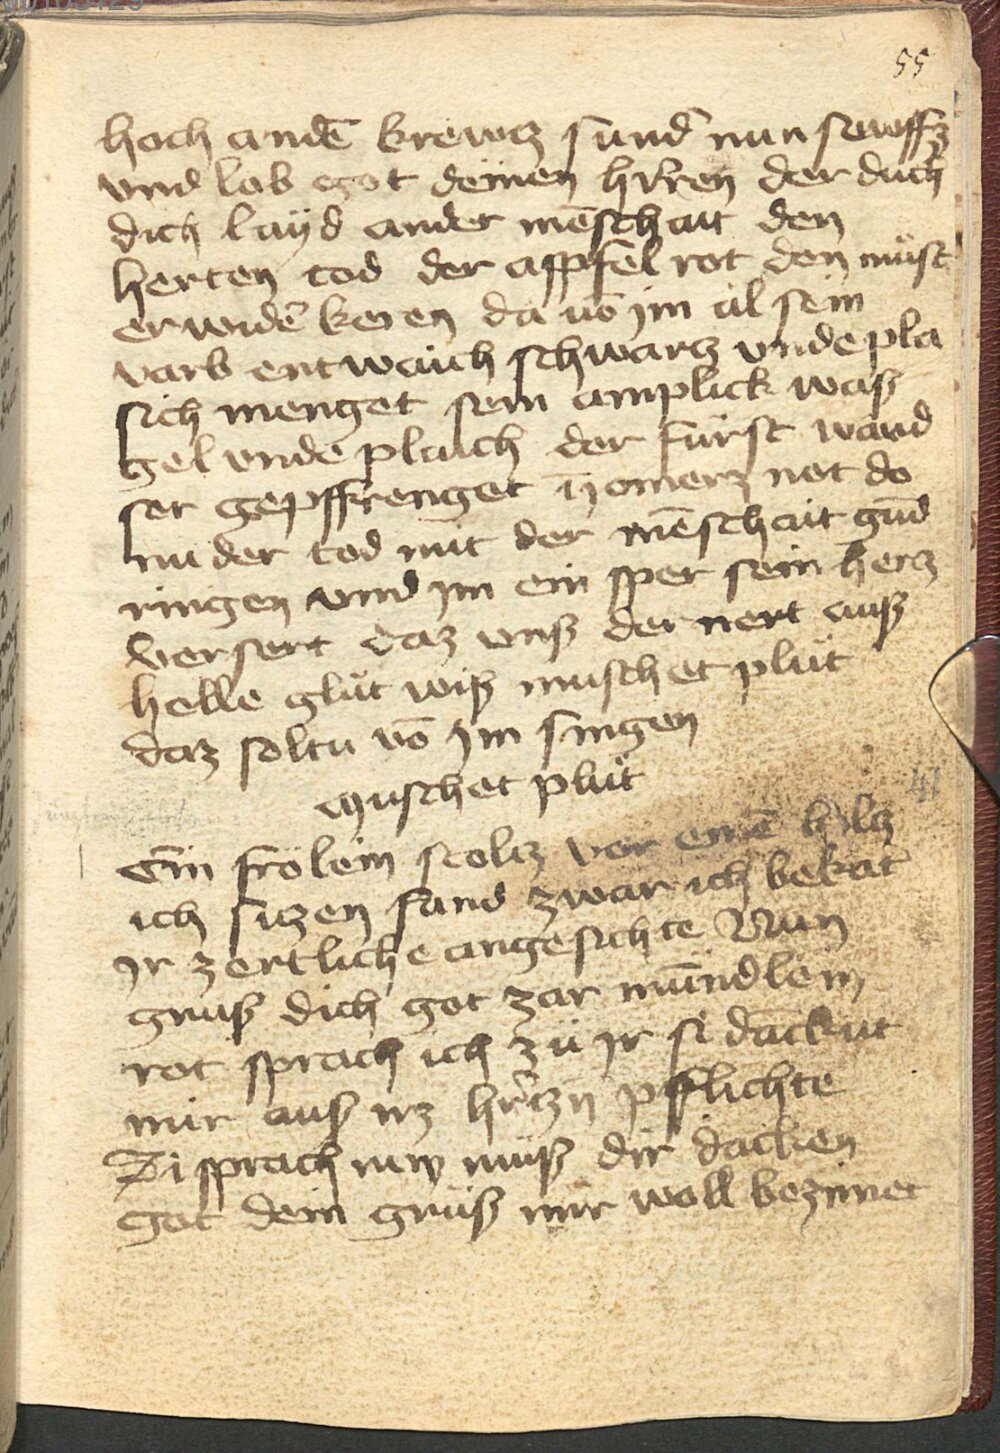 55
hoch andē krewtz sund' nun sewfftz
vnd lob got deinen h'ren der duch
dich layd ander mēschait den
herten tod der appfel rot den must
er widē keren da vō jm al sein
varb entwaich schwartz vnde pla
sich menget sein anplick waß
gel vnde plaich der fürst ward
ser gepffrenget jomerz not do
nu der tod mit der mēschait gūd
ringen vnd jm ein sper sein hertz
versert daz vnß der nert auß
helle glůt wiß muschet plůt
daz soltu vō jm singen
Muschet plůt
41
Ein frölein stoltz vor einē holtz
ich sitzen fand zwar ich bekāt
Ir zertliche angesichte Nun
gruß dich got zar mündlein
rot sprach ich zů jr si dāckut
mir auß irz h'tzn pfflichte
Si sprach new muß dir dācken
got dein gruß mir woll bezimet